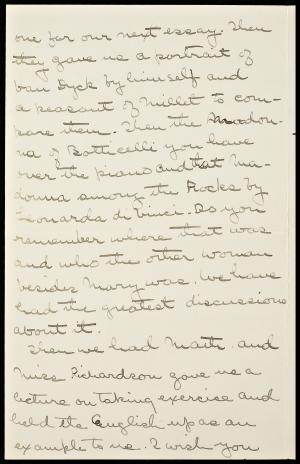 one for our next essay. Then
they gave us a portrait of
Van Dyck by himself and
a peasant of Millet to com-
pare them. Then the Madon-
na of Botticelli you have
over the piano and that Ma-
donna among the Rocks by
Leonarda di Vinci. Do you
remember where that was
and who the other woman
besides Mary was. We have
had the greatest discussions
about it.
Then we had Math. and
Miss Richardson gave us a
lecture on taking exercise and
held the English up as an
example to us. I wish you